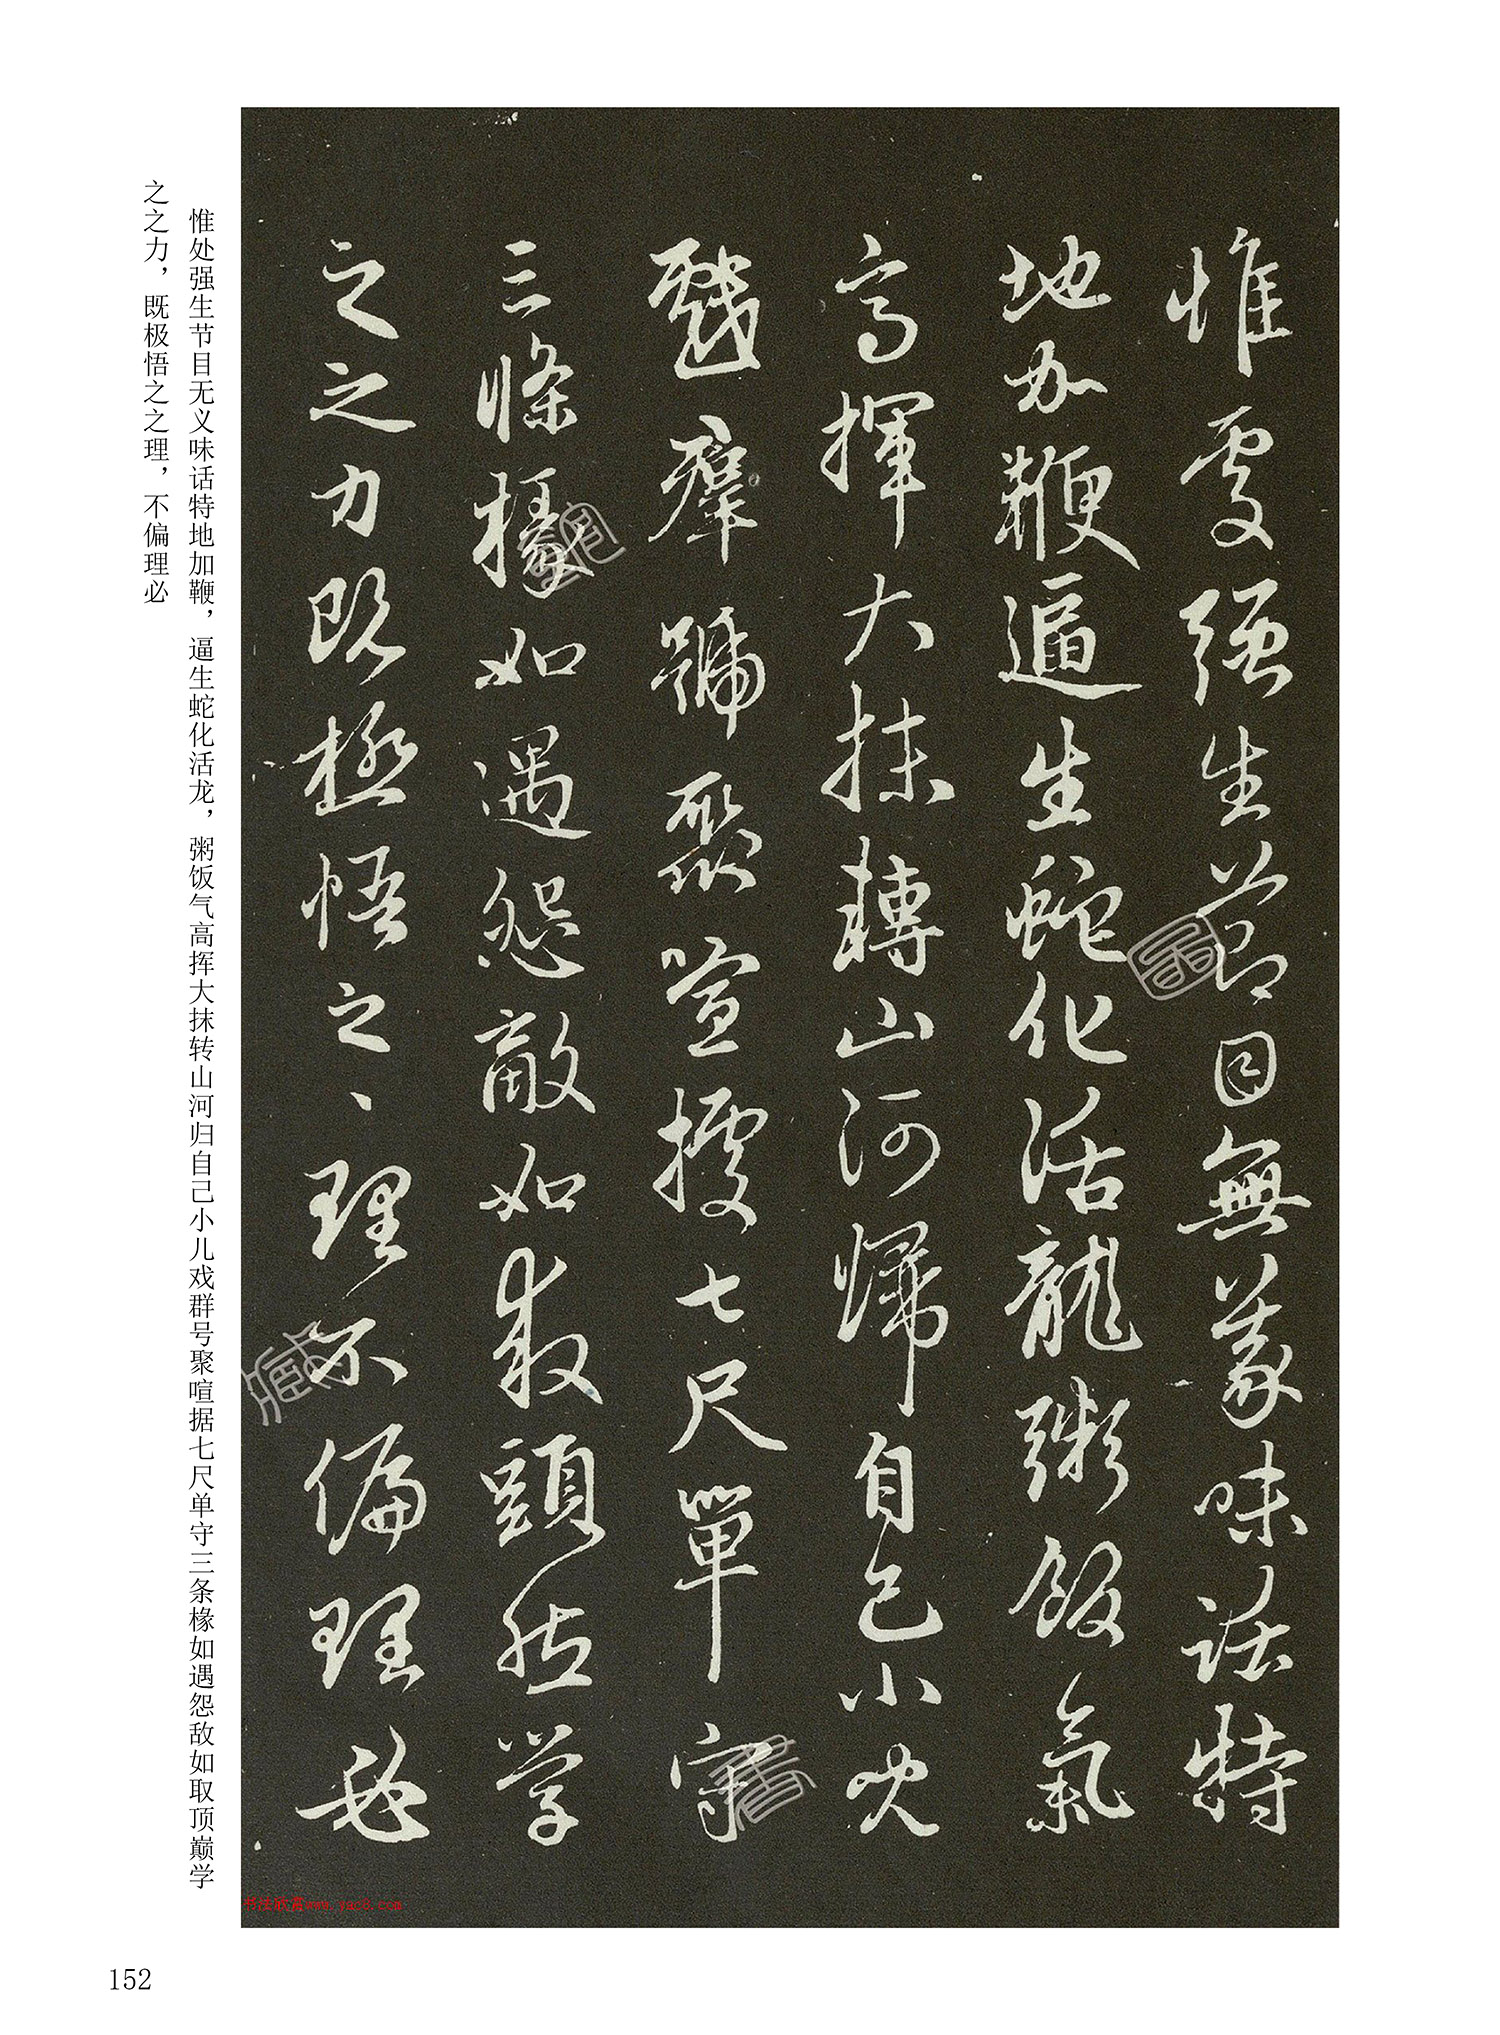 惟處强生節目無義味話特
地加鞭逼生蛇化活龍粥飯氣
高揮大抹轉山河歸自己小兒
戲群號聚喧據七尺單守
三條椽如遇怨敵如救頭然学
之之力既極悟之、理不偏理必
惟处强生节目无义味话特地加鞭，逼生蛇化活龙，粥饭气高挥大抹转山河归自己小儿戏群号聚喧据七尺单守三条椽如遇怨敌如取顶巅学
之之力，既极悟之之理，不偏理必
书法欣赏www.yac8.com
152